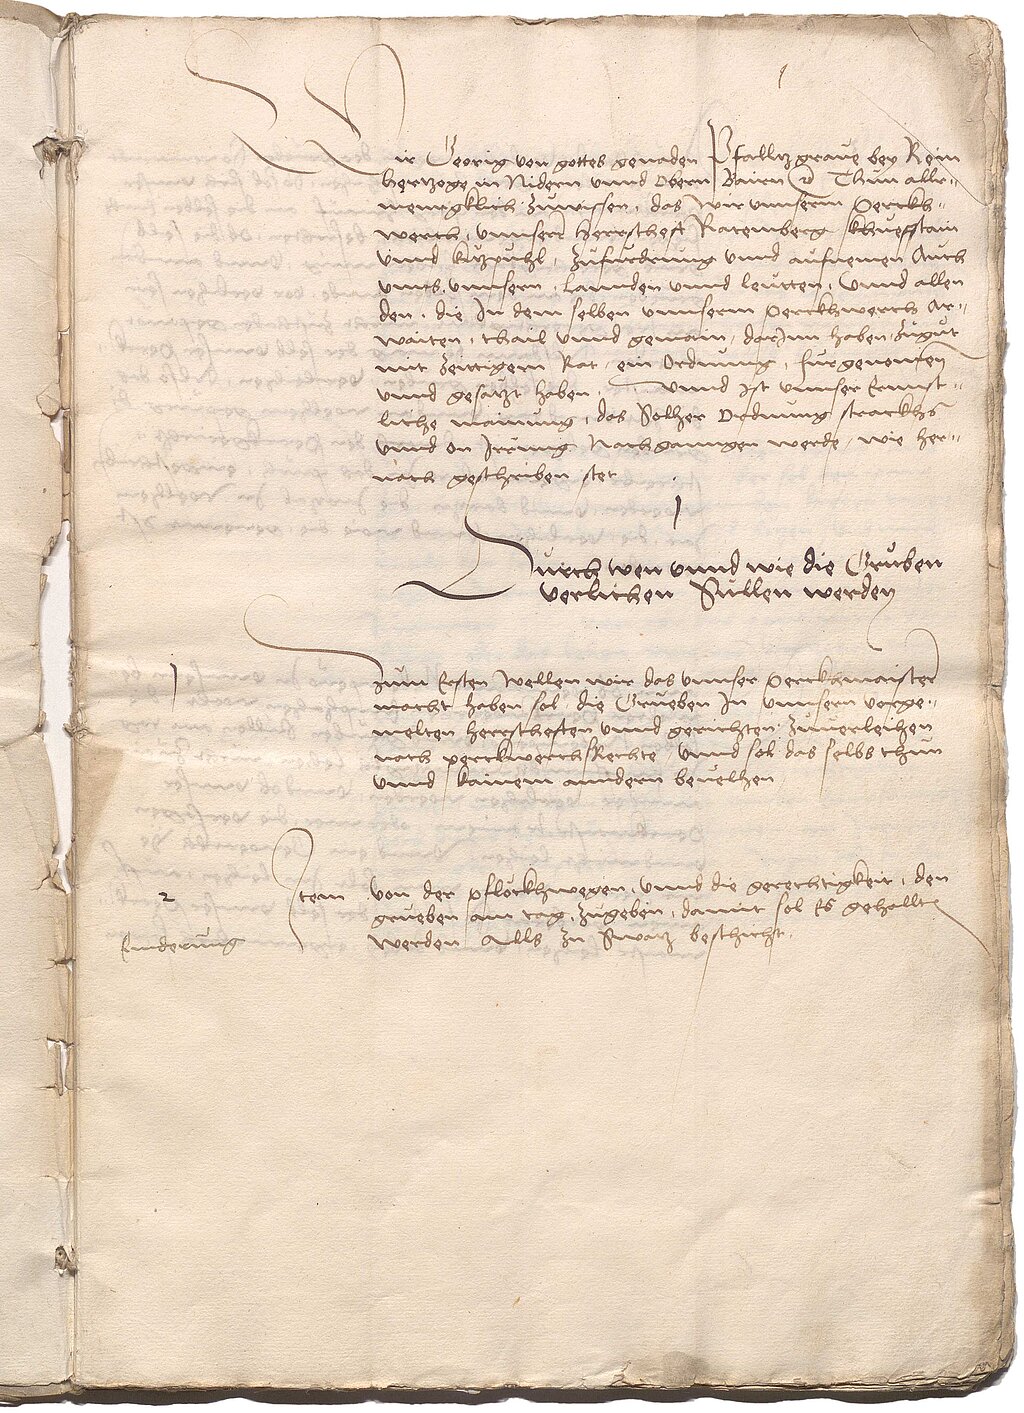 1
Wir Georig von gottes genaden Pfalltzgrave bey Rein
Hertzoge in Nidern unnd Obern Bairn &c Thun aller-
menigklich zuwissen, das wir unnserm Perckh-
werch, unnser Herrschefft Ratemberg khueffstain
unnd kitzpuhl, zufurdrung unnd aufnemen Auch
unns, unnsern, Lannden unnd leutten, unnd allen
den, die In dem selben unnserm Perckhwerch Ar-
waiten, thail unnd gemain, darInn haben, zugut
mit zeittigem Rat, ein Ordnung, furgenomen
unnd gesatzt haben, unnd Ist unnser Ernnst-
liche mainung, das Solher Ordnung strackhs
unnd on Irrung Nachganngen werde, wie her-
nach geschriben stet
1
Durch wen unnd wie die Gruben
verlichen Sullen werden
1
Zum Ersten Wellen wir das unnser Perckhmaister
macht haben sol, die Grueben In unnsern vorge-
melten herrschefften unnd gerichten zuverleihen
nach perckwerchs Rechte, unnd sol das selbs thun
unnd kainem anndern bevelhen
2
Item von der pflöckhwegen, unnd die gerechtigkeit, den
grueben am tag, zugeben, damit sol Es gehallten
werden Alls zu Swatz beschicht.
Enderung